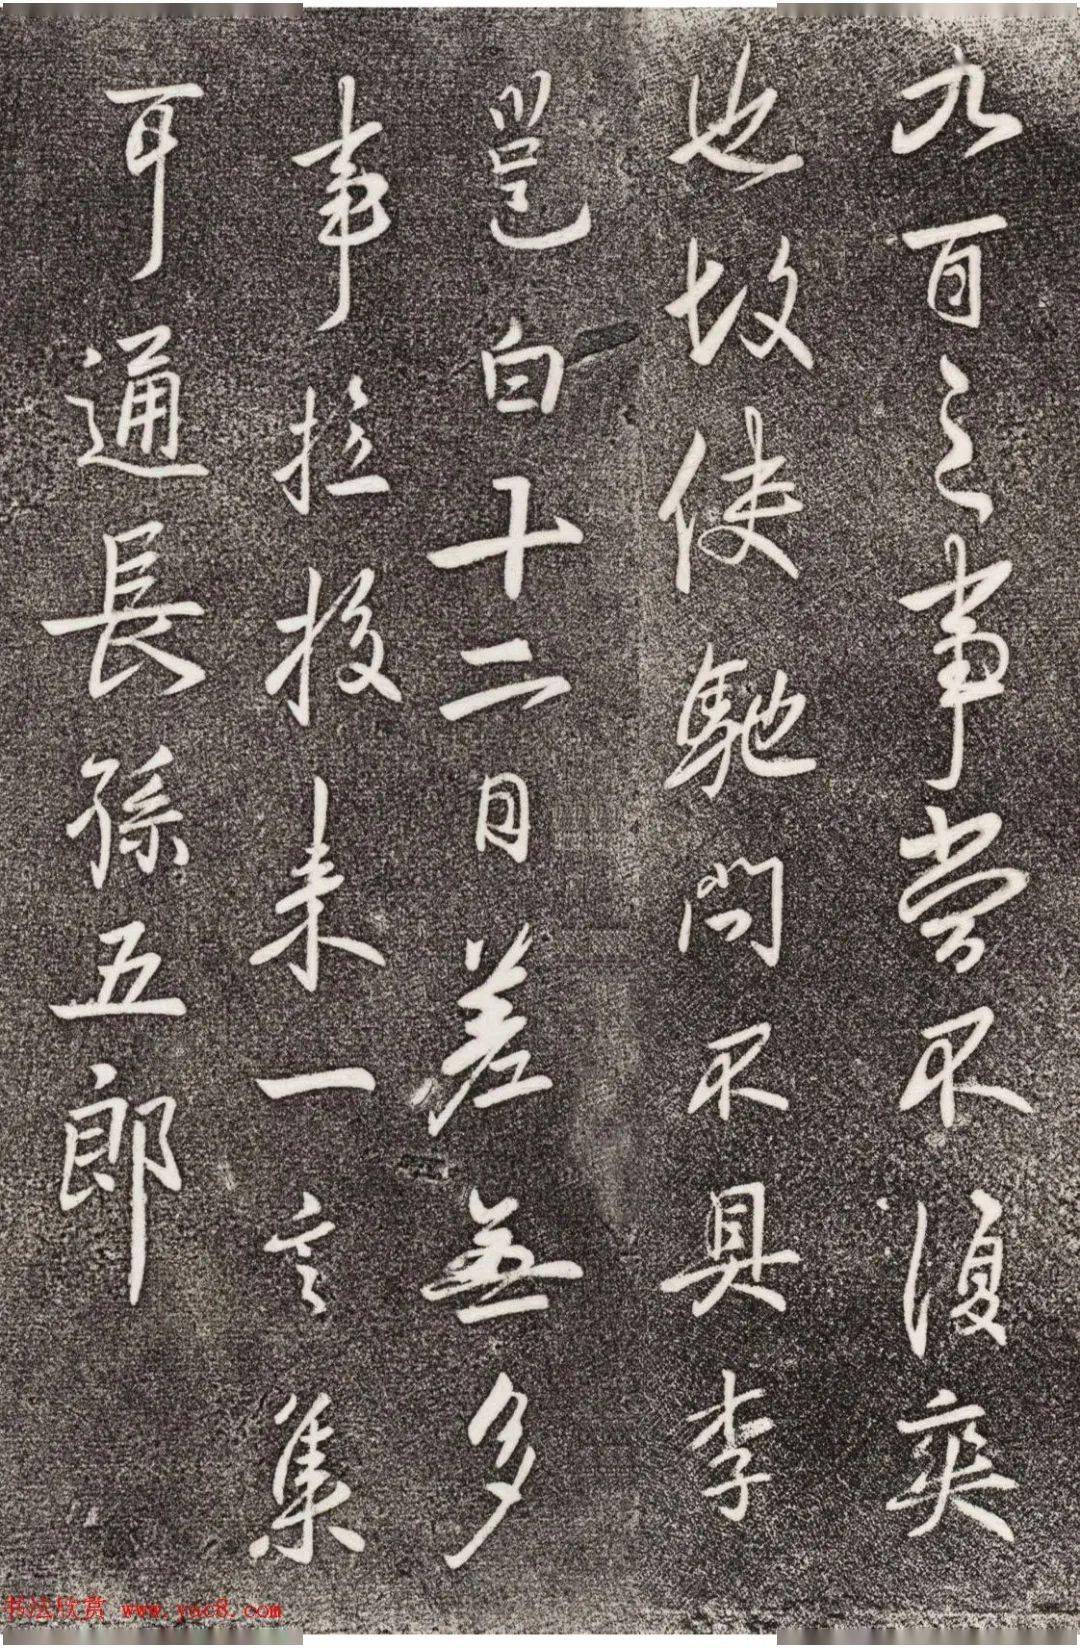 九百之事當不復爽
也故使馳問不具李
邕白十二日差無多
事拉投来一言集
耳通長孫五郎
书法欣赏 www.yac8.com